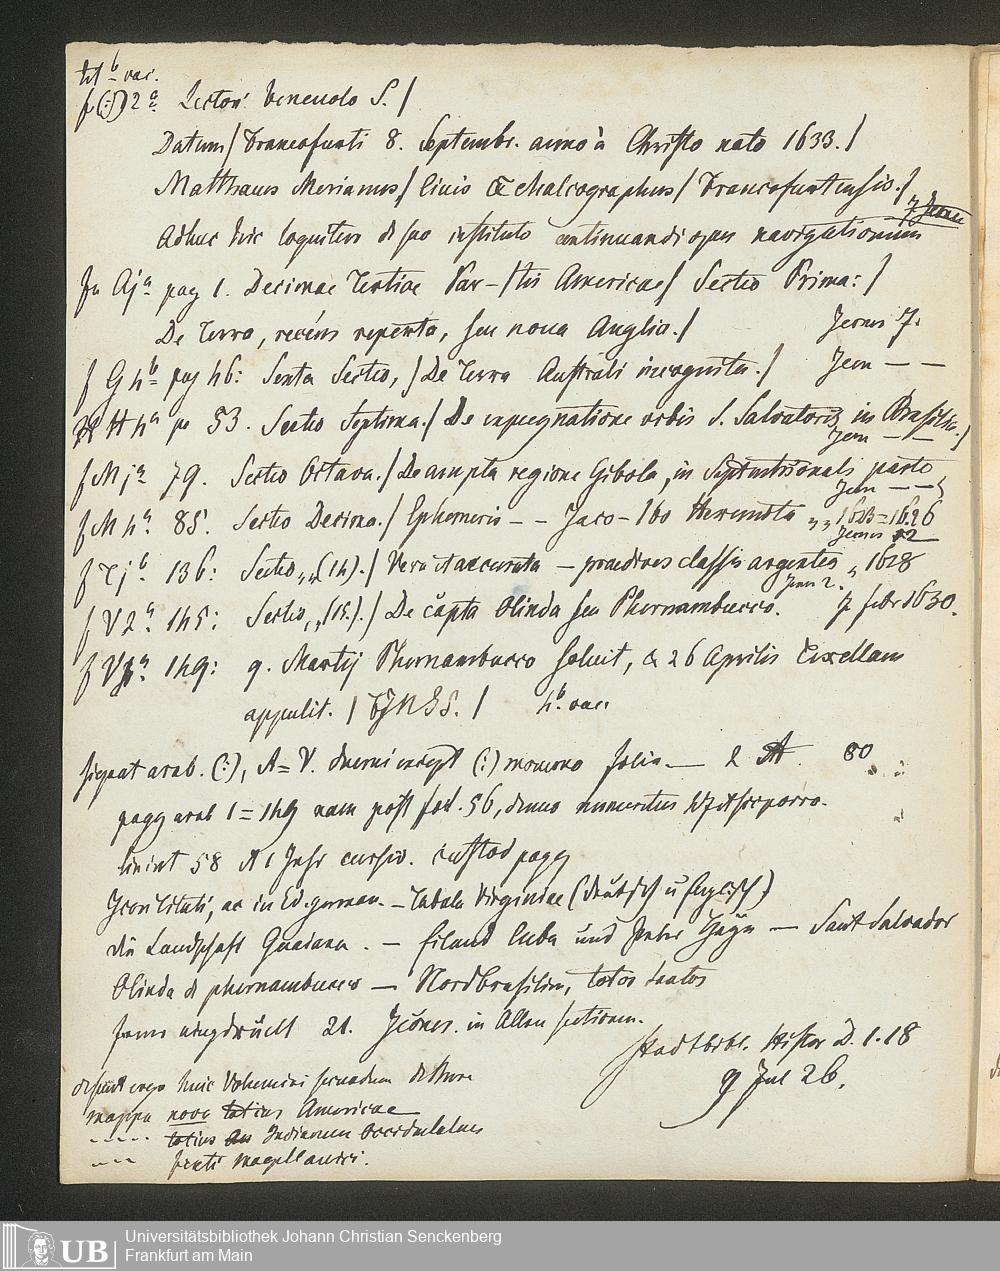 tit b vac.
f (:) 2 a Lectori benevolo S. /
Datum / Francofurti 8. Septembr. anno à Christo nato 1633. /
Matthaeus Merianus / Civis & Chalcographus / Francofurtensis. /
Adhuc hic loquitur de suo instituto continuandi opus navigationum
fu Aja pag 1. Decimae Tertiae Par- / tis Americae / Sectio Prima: /
De Terra, recèns reperta, seu nova Anglia. / Icones 7.
f G 4 b pag 46: Sexta Sectio, / De Terra Australi incognita. / Icon — —
H 4 a pa 53. Sectio Septima. / De expugnatione urbis S. Salvatoris in Brasilia. /
Icon — —
f M j a 79. Sectio Octava. / De ampla regione Cibola, in Septentrionali parte
Icon — —
f M 4 a. 85. Sectio Decima. / Ephemeris - - Jaco- / bo Heremita „ „ 1623=1626
Icones 2
f T j b. 136: Sectio „„ (14). / Vera et accurata — praedives classis argentea „ 1628
Icones 2.
f V 2 a. 145: Sectio, „ (15.). / De capta Olinda seu Phernambucco. 7 febr 1630.
f V a. 149: 9. Martij Phernambucco solvit, & 26 Aprilis Texellam
appulit. / FINIS. / 4 b. vac.
signat arab. (:), A=V. duerni except (:) folia — 2 A 80
pagg arab 1=149 nam post fol. 56, denuo numeritus 47 et sic porro.
linint 58 cursiv. custod pagg
Icon tituli, ac in Ed. german. — Tabula Virginiae (deutsch u englisch)
die Landschaft Guaiana. — Eiland Cuba und — Sant Salvador
Olinda de phernambucco — Nordbrasilien, totos
ferner eingedruckt 21. Icones. in Allen sectionen.
Stadtbibl. Histor D. 1. 18
9 Jul 26.
desunt ergo huic Volumini secundum de Bure
mappa nova totius Americae
- - - - - totius Indiarum Occidentalium
- - - freti magellanici.
Universitätsbibliothek Johann Christian Senckenberg
Frankfurt am Main
UB